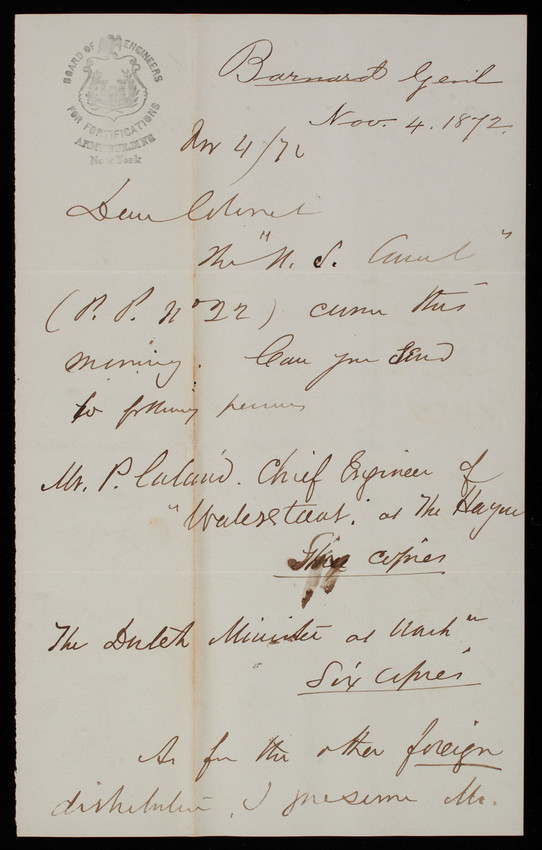 BOARD OF ENGINEERS
FOR FORTIFICATIONS
ARMY BUILDING
New York
Barnard Genl
Nov. 4. 1872.
Nov 4/72
Dear Colonel
The "N. S. Canal"
(P. P. No 22) came this
morning. Can you send
to following persons
Mr. P. Caland. Chief Engineer of
"Waterstaat." at The Hague
Three copies
The Dutch Minister at Wash"
Six copies
As for the other foreign
distribution, I presume Mr.